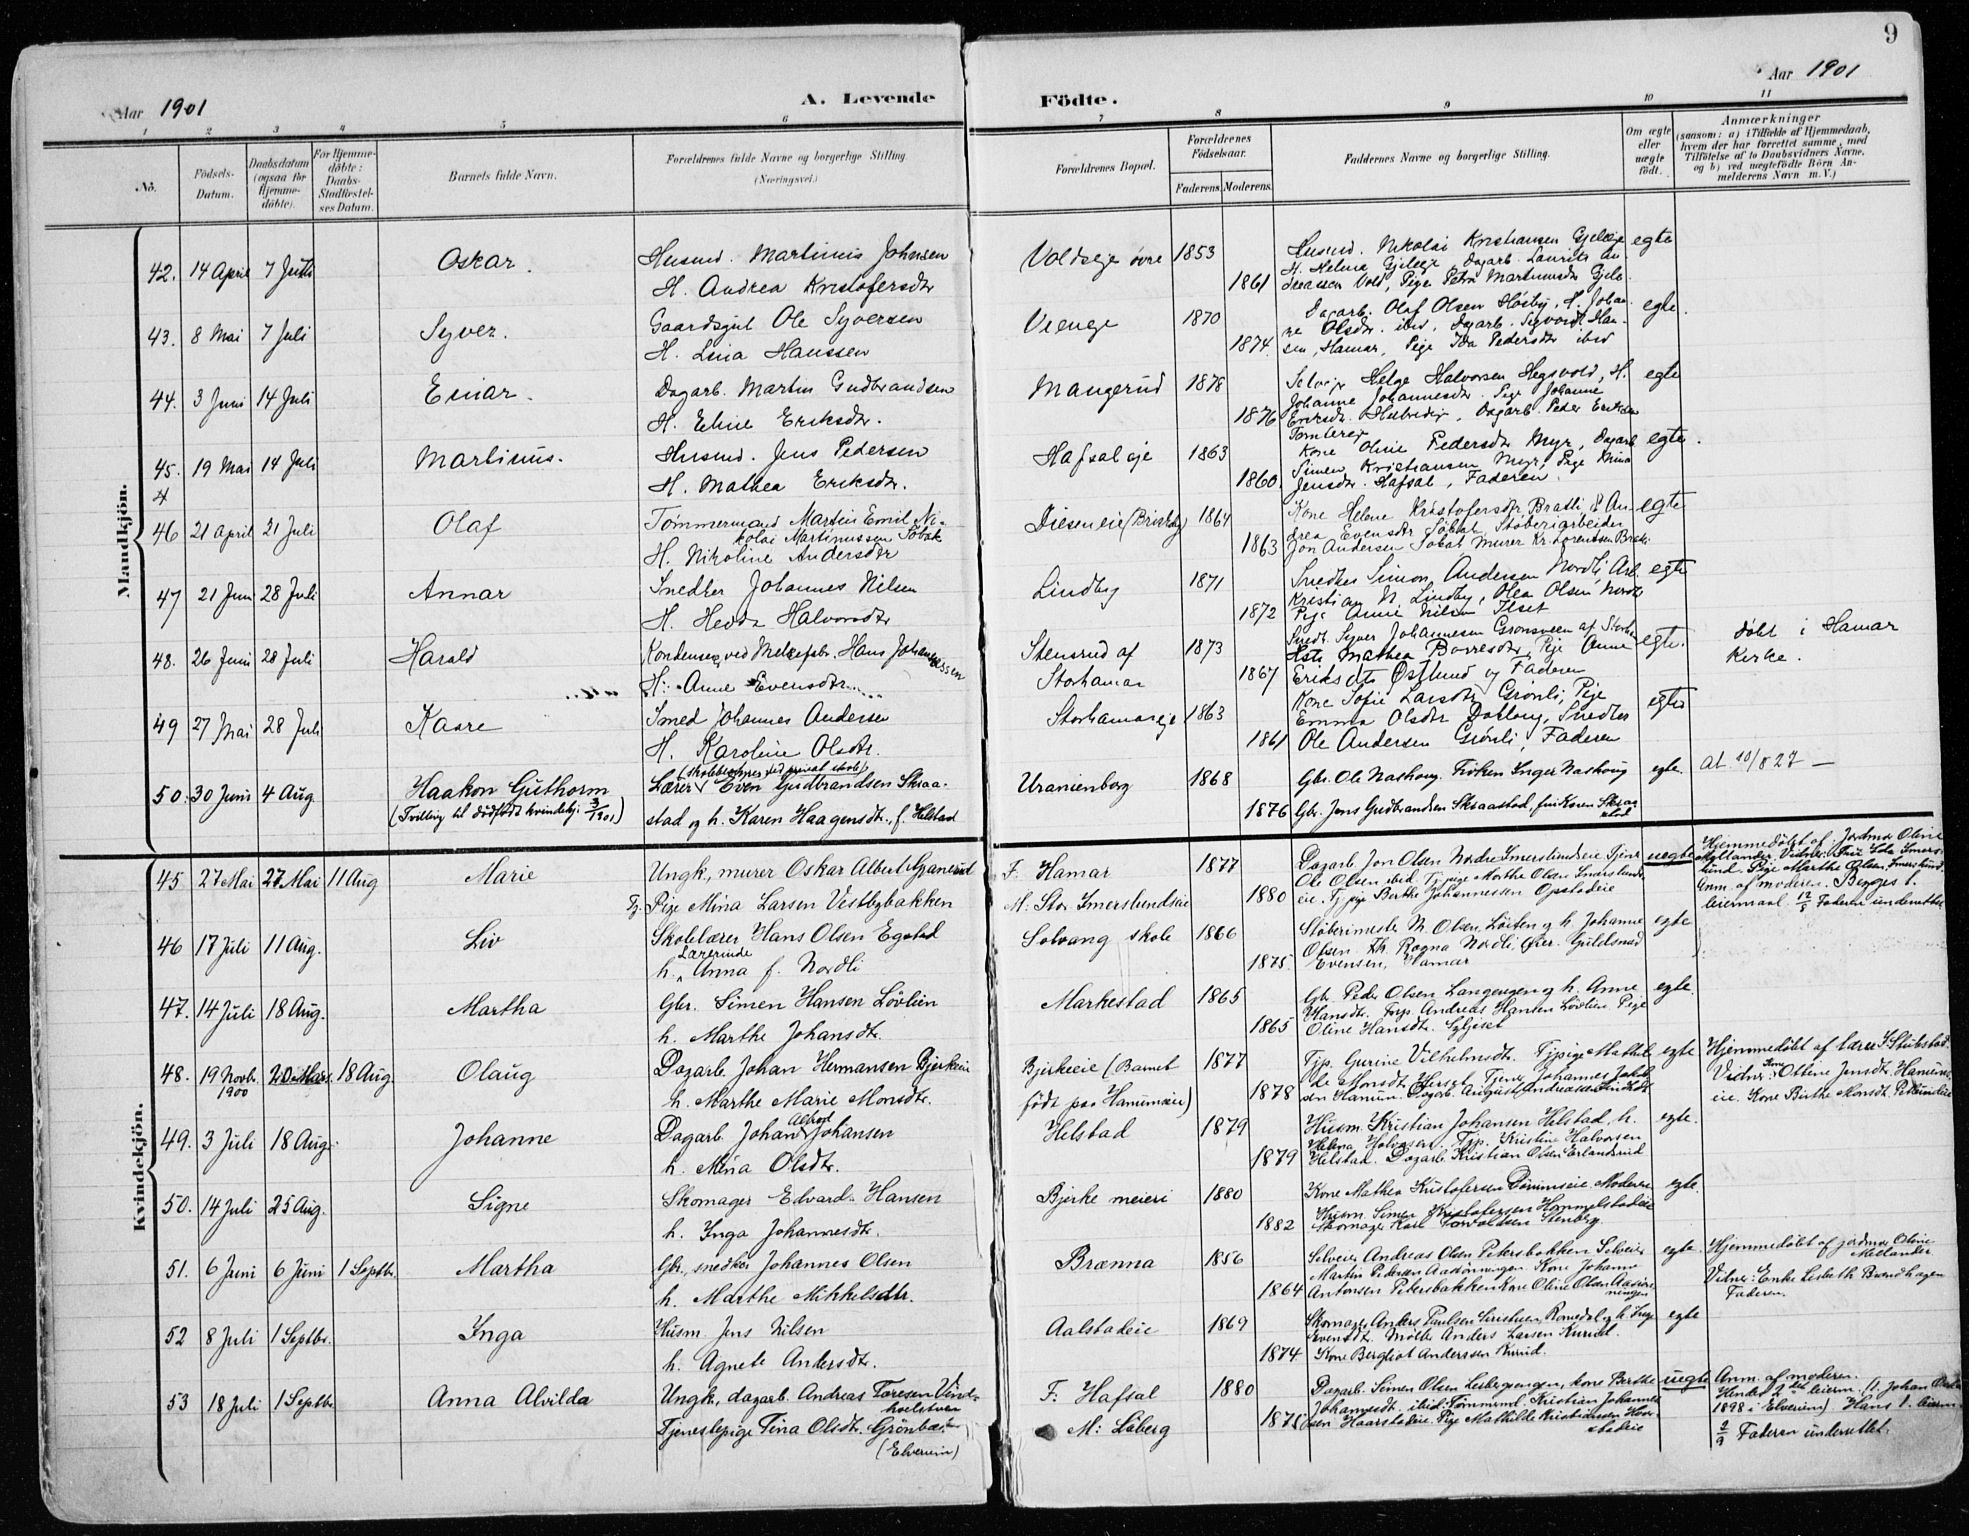 9
Aar 1901
A. Levende
Födte.
Aar 1901
1 2 3 4 5 6 7 8 9 10 11
No.
Födsels-Datum.
Daabsdatum (ogsaa for Hjemme-döbte).
For Hjemme-döbte: Daabs-Stadfæstel-ses Datum.
Barnets fulde Navn.
Forældrenes fulde Navne og borgerlige Stilling.
(Næringsvei.)
Forældrenes Bopæl.
Forældrenes Födselsaar.
Faderens. Moderens.
Faddernes Navne og borgerlige Stilling.
Om ægte eller uægte födt.
Anmærkninger
(saasom: a) i Tilfælde af Hjemmedaab,
hvem der har forrettet samme, med
Tilföielse af to Daabsvidners Navne,
og b) ved uægtefödte Börn An-
melderens Navn m. V.)
Mandkjön.
42. 14 April 7 Juli Oskar. Husmd. Martinus Johnsen
H. Andrea Kristofersdtr
Voldseje övre 1853 1861
Husmd. Nikolai Kristiansen Gjeleeje egte
H. Helena Gjeleeje, Dagarb. Laurits An-
dreassen Vold, Pige Petra Martinusdtr Gjele
43. 8 Mai 7 Juli Syver. Gaardsgut Ole Syversen
H. Lina Hanssen
Vienge 1870 1874.
Dagarb. Olaf Olsen Hösbj, H. Johan- egte.
ne Olsdtr. ibid, Dagarb. Sigvard Han-
sen, Hamar, Pige Ida Pedersdtr ibid
44. 3 Juni 14 Juli Einar. Dagarb. Martin Gudbrandsen
H. Eline Eriksdtr.
Mangerud 1878 1876
Selvejr Helge Halvorsen Hegsvold, H. egte
Johanne Johannesdtr. Pige Johanne
Eriksdtr. , Dagarb. Peder Eriksen
45. 19 Mai 14 Juli Martinus. Husmd. Jens Pedersen
H. Mathea Eriksdtr.
Hafsaleje 1863 1860.
Kone Oline Pedersdtr Myr, Dagarb egte.
Simen Kristiansen Myr, Pige
Jensdtr. Hafsal, Faderen.
46 21 April 21 Juli Olaf Tömmermand Martin Emil Ni-
kolai Martinussen Sobak
H. Nikoline Andersdtr
Dieseneie 1864 1863
Kone Helene Kristofersdtr Bratli, H An- egte
drea Evensdtr Sobak, Stöberiarbeider
Jon Andersen Sobak Murer Kr. Lorentsen
47 21 Juni 28 Juli Annar Snedker Johannes Nilsen
H. Hedda Halvorsdtr
Lindby 1871 1872
Snedker Simon Andersen Nordli, Arb. egte
Kristian N. Lindby, Olea Olsen Nordli
Pige Anne Nilsen Ilset
48. 26 Juni 28 Juli Harald Kondenser ved Melkefabr. Hans Johannessen
H. Anne Evensdtr.
Stensrud af Storhamar 1873 1867
Snedk. Syver Johannesen Gronsveen af Storha- egte.
Mathea Borresdtr, Pige Anne
Eriksdtr Östlund og Faderen
döbt i Hamar
Kirke.
49 27 Mai 28 Juli Kaare Smed Johannes Andersen
H. Karoline Olsdtr.
Storhamareje 1863 1861
Kone Sofie Larsdtr Grönli, Pige egte
Emma Olsdtr , Snedker
Ole Andersen Grönli, Faderen
50. 30 Juni 4 Aug. Haakon Guthorm
(Tvilling til dödfödt kvindekj. 3/1901)
(skolebestyrer ved privat skole)
Lærer Even Gudbrandsen Skraa-
stad og h. Karen Haagensdtr. f. Helstad
Uranienborg 1868 1876
Gbr. Ole Naskoug. Fröken Inger Naskoug egte.
Gbr. Jens Gudbrandsen Skraastad, fru Karen Skraa-
stad
At. 10/8 27 —
Kvindekjön.
45 27 Mai 27 Mai 11 Aug Marie Ungk., murer Oskar Albert Gjanerud
Tj. Pige Mina Larsen Vestbybakken
F. Hamar 1877
M: Stor Imerslundseie 1880
Dagarb. Jon Olsen Nordre Imerslundseie Tjener uegte
Ole Olsen ibid, Tj. pige Marthe Olsen Imerslunds-
eie. Tj. pige Berthe Johannessen Opstadeie
Hjemmedöbt af Jordmor Oline
Mellander. Vidner: Fru Ida Imers-
lund, Pige Marthe Olsen Imerslund.
Anm. af moderen. Begges 1.
leiermaal. 12/8 Faderen underrettet
46 17 Juli 11 Aug. Liv Skolelærer Hans Olsen Egstad
Lærerinde
h. Anna f. Nordli
Solvang skole 1866 1875.
Stöberimester N. Olsen, Löiten og h. Johanne egte
Olsen. Frk. Ragna Nordli, Öier. Guldsmed
Evensen, Hamar
47. 14 Juli 18 Aug. Martha Gbr. Simen Hansen Lövlien
h. Marthe Johansdtr.
Markestad 1865 1865
Gbr. Peder Olsen Langengen og h. Anne egte.
Hansdtr. Frp. Andreas Hansen Lövlien. Pige
Oline Hansdtr.
48. 19 Novbr. 1900 20 Mars. 18 Aug. Olaug Dagarb. Johan Hermansen Bjerkeie
h. Marthe Marie Monsdtr.
Bjerkeeie (Barnet
födt paa Hanumseie)
1877 1878
Tjp. Gurine Vilhelmsdtr. Tjpige Mathil- egte
de Monsdtr. Tjener Johannes Jakob-
sen Hanum. Dagarb. August Andreassen
Hjemmedöbt af lærer S. Stubstad.
Vidner: Kone Oline Jensdtr. Hanums-
eie. Kone Berthe Monsdtr.
49. 3 Juli 18 Aug. Johanne Dagarb. Johan Alfred Johansen
h. Mina Olsdtr.
Helstad 1879 1879
Husm. Kristian Johansen Helstad, h. egte.
Helena Halvorsen. Tjp. Kristine Halvorsen
Helstad. Dagarb. Kristian Olsen Erlandsrud
50. 14 Juli 25 Aug. Signe Skomager Edvard Hansen
h. Inga Johannesdtr.
Bjerke meieri 1880 1882
Kone Mathea Kristofersen . Moderen egte.
Husm. Simen Kristofersen Hommelstadeie
Skomager Karl Torvaldsen Stenberg.
51. 6 Juni 6 Juni 1 Septbr. Martha Gbr., snedker Johannes Olsen
h. Marthe Mikkelsdtr.
Brænna 1856 1864
Selveier Andreas Olsen Petersbakken. Selveier egte.
Martin Pedersen . Kone Johanne
Antonsen Petersbakken Kone Oline Olsen
Hjemmedöbt af jordmor Oline
Mellander.
Vidner: Enke Lisbeth Brændhagen
Faderen.
52 8 Juli 1 Septbr. Inga Husm. Jens Nilsen
h. Agnete Andersdtr.
Aalstadeie 1869 1874
Skomager Anders Paulsen , Romedal og h. Inge egte
Evensdtr. Möller Anders Larsen Kurud.
Kone Bergliot Anderssen Kurud.
53 18 Juli 1 Septbr Anna Alvilda Ungk., dagarb. Andreas Toresen Vind-
hvelstuen
Tjenestepige Tina Olsdtr. Grönbæ
(Elverum)
F: Hafsal 1880
M: Löberg
Dagarb. Simen Olsen Lesbergsengen, kone Berthe uegte
Johannesdtr. ibid. Tömmermd. Kristian Johannes-
sen Haarstadeie. Pige Mathilde Kristiansen Haar-
stadeie
Anm. af moderen.
Hendes 2det leierm. (1. Johan
1898 i Elverum) Hans 1. leierm.
2/9 Faderen underrettet.